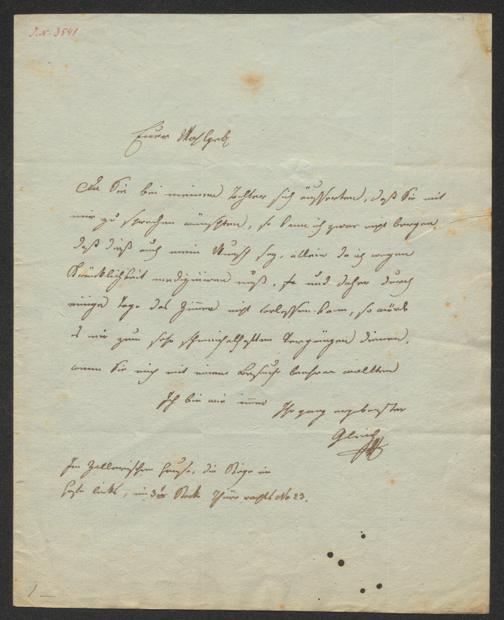 J.N. 3541
Euer Wohlgeb
Da Sie bei meiner Tochter sich äusserten, daß Sie mit
mir zu sprechen wünschten, so kann ich zwar nicht bergen
daß dieß auch mein Wunsch sey, allein da ich wegen
Kränklichkeit mediziniren muß, und daher durch
einige Tage das Zimmer nicht verlassen kann, so würde
es mir zum sehr schmeichelhaften Vergnügen dienen,
wenn Sie mich mit einem Besuche beehren wollten
Ich bin wie immer Ihr ganz ergebenster
Gleich
Im Zellerischen Hause, die Stiege im
Hofe links, im 3ten Stock Thüre rechts No 23.